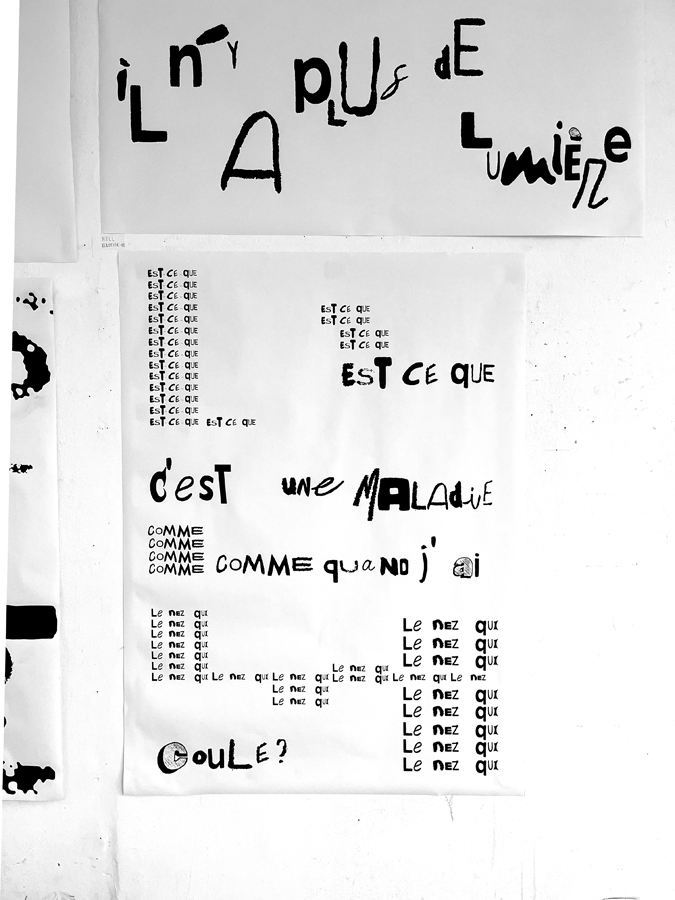 iL n'Y A pLUS dE
LumièRe
EST CE QUE
EST CE QUE
EST CE QUE
EST CE QUE
EST CE QUE
EST CE QUE
EST CE QUE
EST CE QUE
EST CE QUE
EST CE QUE
EST CE QUE
EST CE QUE
EST CE QUE
EST CE QUE EST CE QUE
EST CE QUE
EST CE QUE
EST CE QUE
EST CE QUE
EST CE QUE
c'esT une MALAdiE
COMME
COMME
COMME
COMME COMME quaND j'ai
Le nEZ qui
Le nEZ qui
Le nEZ qui
Le nEZ qui
Le nEZ qui
Le nEZ qui
Le nEZ qui
Le nEZ qui Le nEZ qui Le nEZ qui Le nEZ qui Le nEZ qui Le nEZ
Le nEZ qui
Le nEZ qui
Le nEZ qui
Le nEZ qui
Le nEZ qui
Le nEZ qui
Le nEZ qui
Le nEZ qui
Le nEZ qui
Le nEZ qui
CouLE?